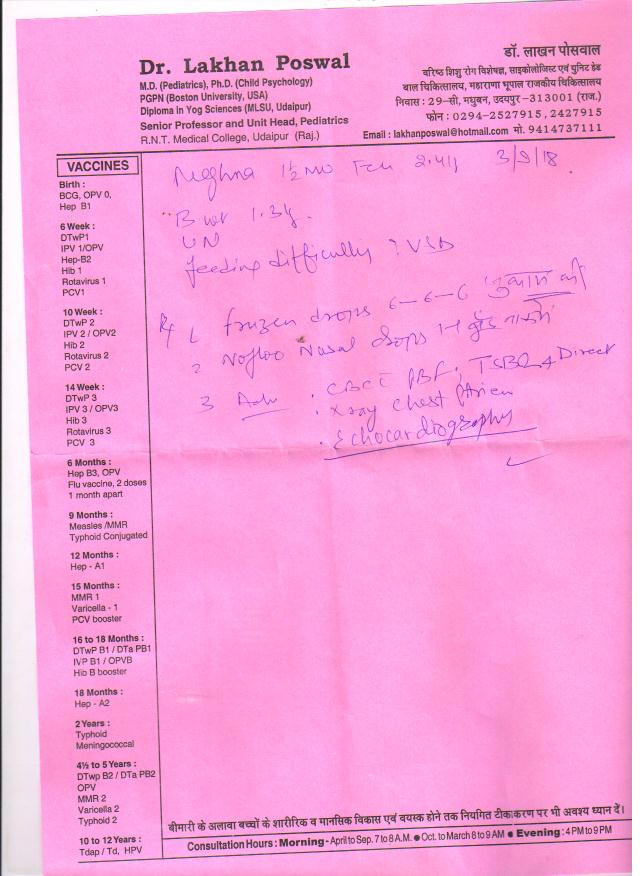 Dr. Lakhan Poswal
M.D. (Pediatrics), Ph.D. (Child Psychology)
PGPN (Boston University, USA)
Diploma in Yog Sciences (MLSU, Udaipur)
Senior Professor and Unit Head, Pediatrics
R.N.T. Medical College, Udaipur (Raj.)
डॉ. लाखन पोसवाल
वरिष्ठ शिशु रोग विशेषज्ञ, साइकोलोजिस्ट एवं युनिट हेड
बाल चिकित्सालय, महाराणा भूपाल राजकीय चिकित्सालय
निवास : 29-सी, मधुबन, उदयपुर-313001 (राज.)
फोन : 0294-2527915, 2427915
Email : lakhanposwal@hotmail.com मो. 9414737111
VACCINES
Birth :
BCG, OPV 0,
Hep B1
6 Week :
DTwP1
IPV 1/OPV
Hep-B2
Hib 1
Rotavirus 1
PCV1
10 Week :
DTwP 2
IPV 2 / OPV2
Hib 2
Rotavirus 2
PCV 2
14 Week :
DTwP 3
IPV 3 / OPV3
Hib 3
Rotavirus 3
PCV 3
6 Months :
Hep B3, OPV
Flu vaccine, 2 doses
1 month apart
9 Months :
Measles /MMR
Typhoid Conjugated
12 Months :
Hep - A1
15 Months :
MMR 1
Varicella - 1
PCV booster
16 to 18 Months :
DTwP B1 / DTa PB1
IVP B1 / OPVB
Hib B booster
18 Months :
Hep - A2
2 Years :
Typhoid
Meningococcal
4½ to 5 Years :
DTwp B2 / DTa PB2
OPV
MMR 2
Varicella 2
Typhoid 2
10 to 12 Years :
Tdap / Td, HPV
Meghna 1½ mo 3/9/18
B wt 1.3kg.
feeding difficulty ? VSD
1 drops 6-6-6 जुकाम की
2 Nasal drops 1-1 बूँद
3 Adv . CBC PBF, Direct
. Xray Chest
. Echocardiography
बीमारी के अलावा बच्चों के शारीरिक व मानसिक विकास एवं वयस्क होने तक नियमित टीकाकरण पर भी अवश्य ध्यान दें।
Consultation Hours : Morning - April to Sep. 7 to 8 A.M. ● Oct. to March 8 to 9 AM ● Evening : 4 PM to 9 PM